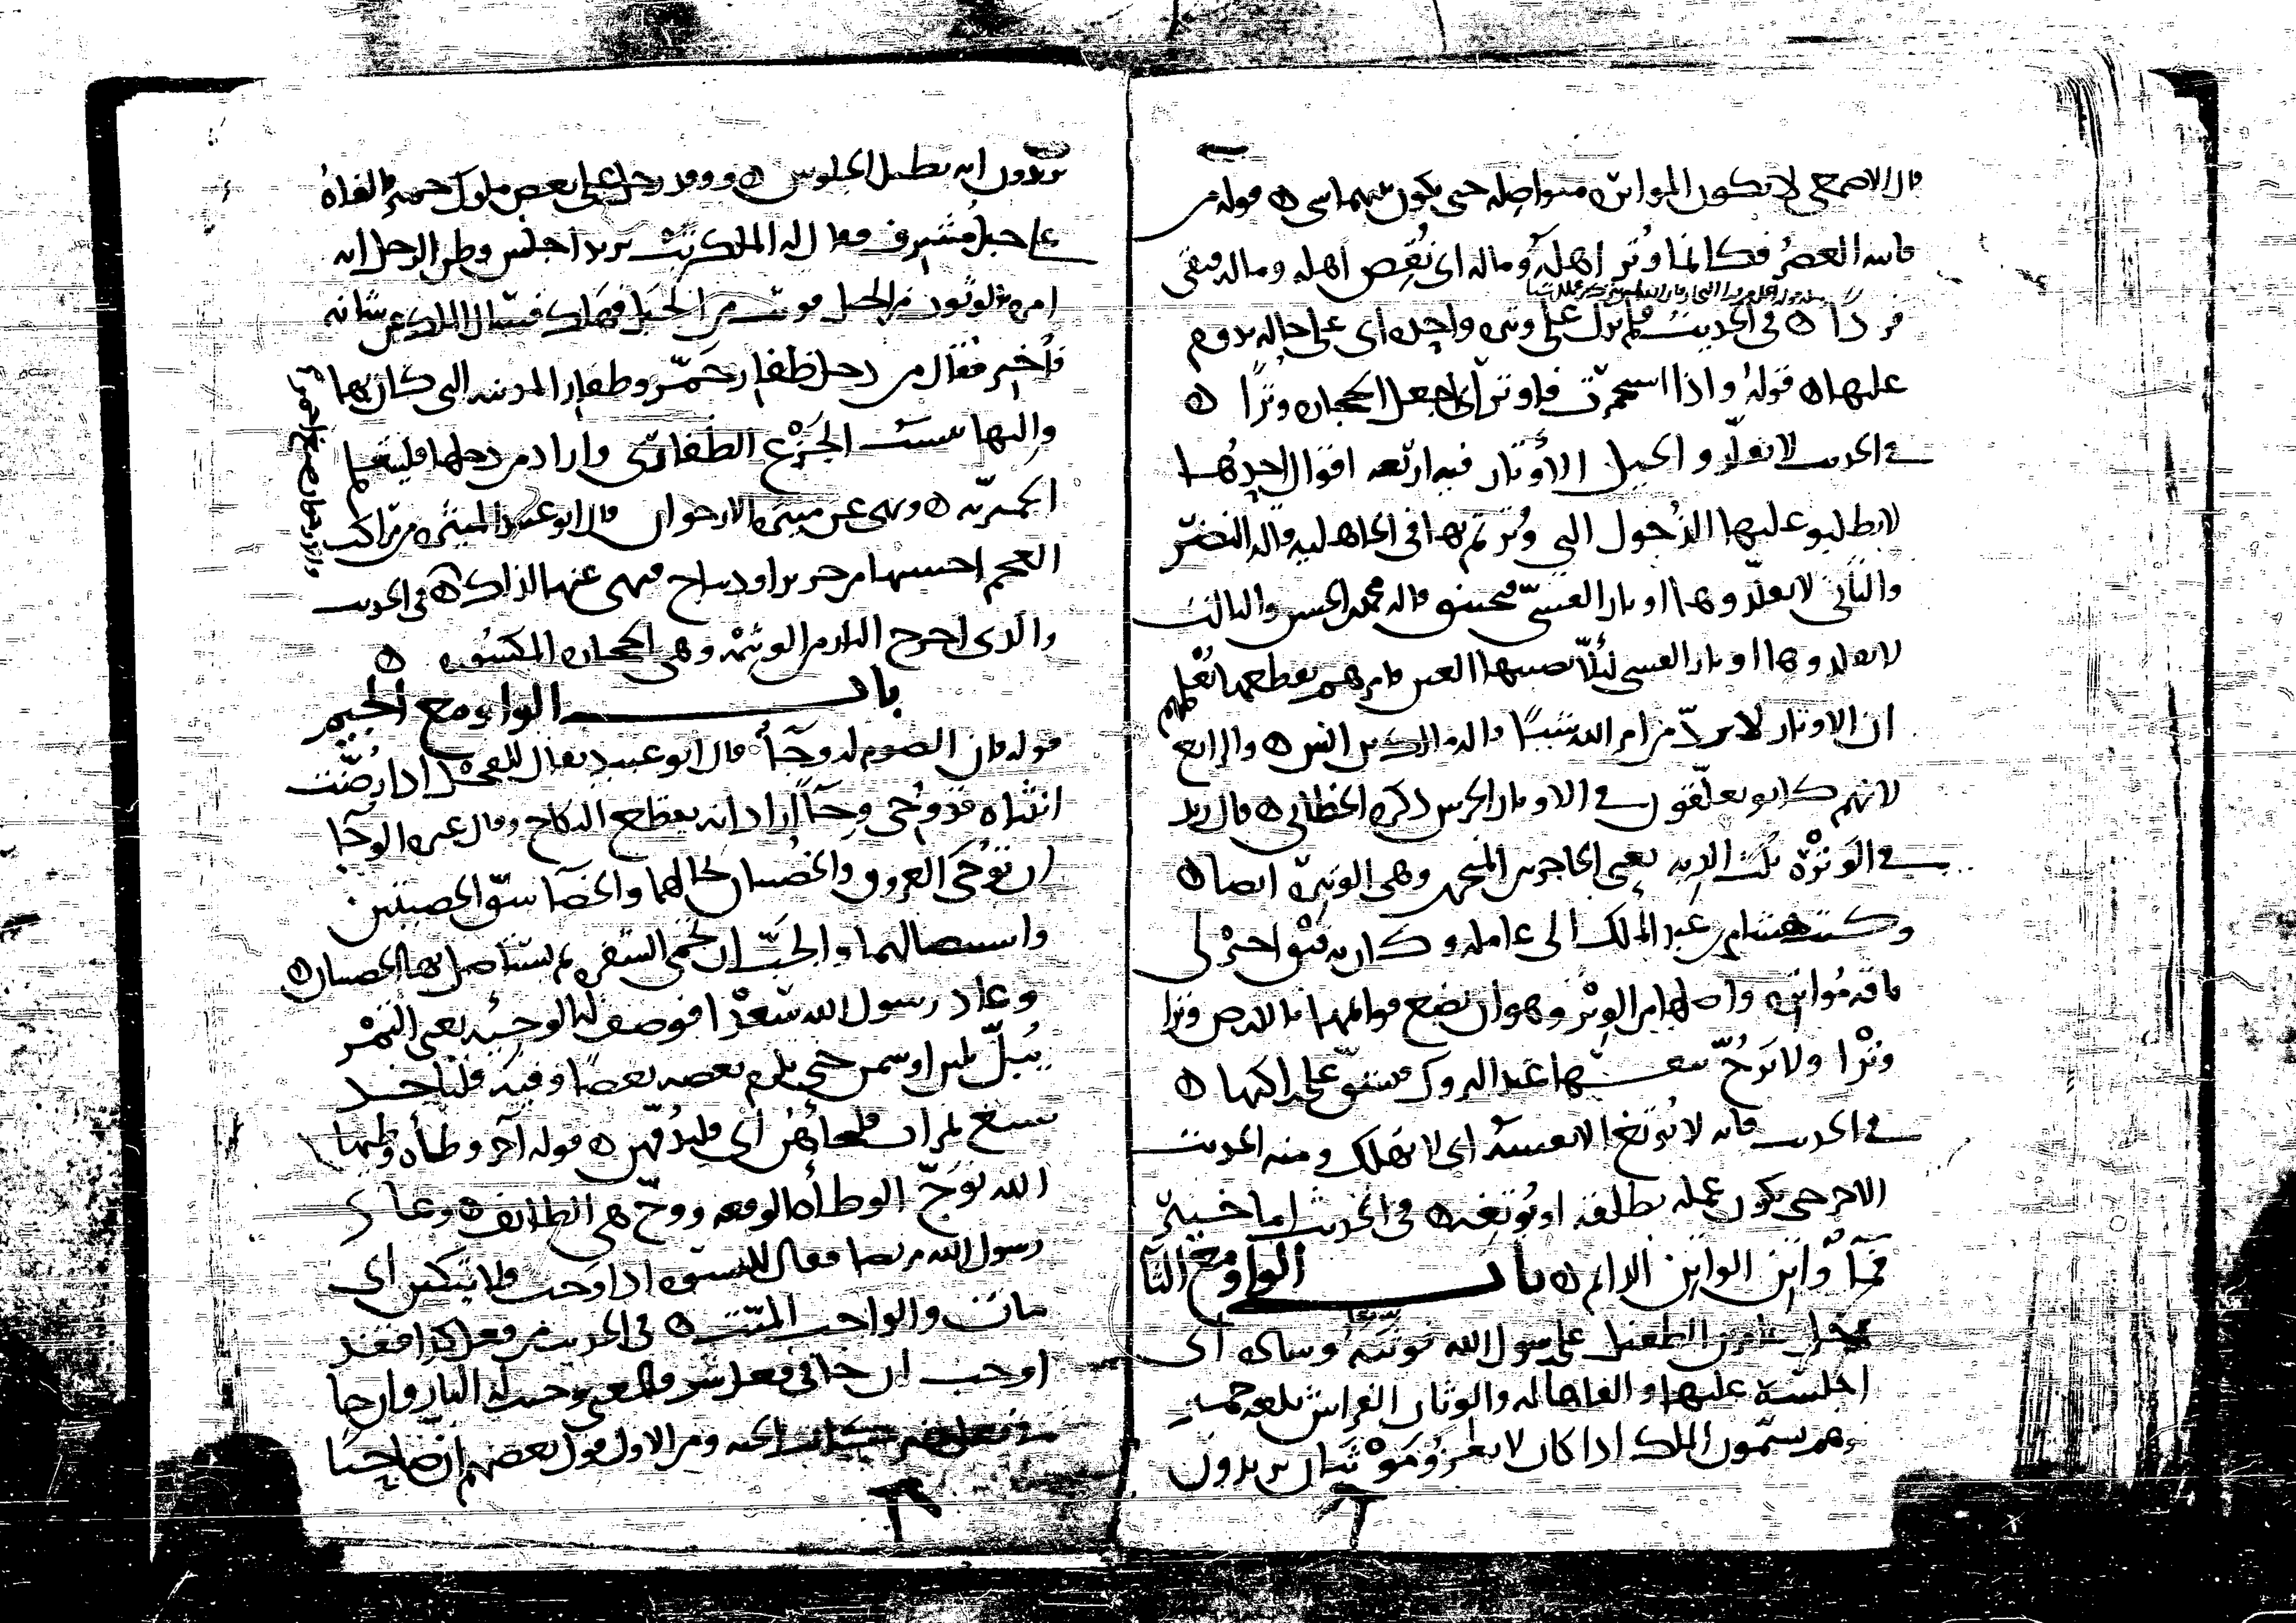 قال الاصمعي لا تكون المواترة متواصلة حتى يكون بينهما شي ه قوله من
فاته العصر فكانما وتر اهله وماله اي نقص اهله وماله فبقي
فردا ه في الحديث فلم يزل على وتيرة واحدة اي على حالة يدوم
عليها ه قوله واذا استجمرت فاوتر اي اجعل الحجارة وترا ه
في الحديث لا تقلدوا الخيل الاوتار فيه اربعة اقوال احدها
لا تطلبوا عليها الذحول التي وترتم بها في الجاهلية قاله النضر
والثاني لا تقلدوها اوتار القسي فتختنق قاله محمد بن الحسن والثالث
لا تقلدوها اوتار القسي لئلا تصيبها العين فامرهم بقطعها يعلمهم
ان الاوتار لا ترد من امر الله شيئا قاله مالك بن انس ه والرابع
لانهم كانوا يعلقون في الاوتار الجرس ذكره الخطابي ه قال زيد
في الوترة ثلث الدية يعني الحاجز بين المنخرين وهي الوتيرة ايضا ه
وكتب هشام بن عبد الملك الى عامله وكان به فتق اختر لي
ناقة مواترة واصلها من الوتر وهو ان تضع قوائمها بالارض وترا
وترا ولا تزج نفسها عند البروك فيشق على راكبها ه
في الحديث فانه لا يوتغ الا نفسه اي لا يهلك ومنه الحديث
الا جى يكون عمله يطلقه او يوتغه ه في الحديث اما خيبر
فماء واتن الواتن الدائم ه باب الواو مع الثاء
دخل عامر بن الطفيل على رسول الله فوثبه وسادة اي
اجلسه عليها والقاها له والوثاب الفراش بلغة حمير
وهم يسمون الملك اذا كان لا يغزو موثبان يريدون
يريدون انه يطيل الجلوس ه ووفد رجل على بعض ملوك حمير فالفاه
على جبل مشرف فقال له الملك ثب يريد اجلس وظن الرجل انه
امره بالوثوب من الجبل فوثب من الجبل فهلك فسال الملك عن شانه
فاخبر فقال من دخل ظفار حمر وظفار المدينة التي كان بها
واليها ينسب الجزع الظفاري واراد من دخلها فليتعلم
الحميرية ه ونهى عن ميثرة الارجوان قال ابو عبيد الميثرة من مراكب
العجم احسبها من حرير او ديباج فنهى عنها لذلك ه في الحديث
والذي اخرج النار من الوثيمة وهي الحجارة المكسورة ه
باب الواو مع الجيم
قوله فان الصوم له وجاء قال ابو عبيد يقال للفحل اذا رضت
انثياه قد وجي وجاء اراد انه يقطع النكاح وقال غيره الوجا
ان توجى العروق والخصيتان بحالهما والخصا شق الخصيتين
واستئصالهما والجب ان تحمى الشفرة ثم يستأصل بها الخصيتان ه
وعاد رسول الله سعدا فوصف له الوجيئة يعني التمر
يبل بلبن او سمن حتى يلزم بعضه بعضا وفيه فلياخذ
سبع تمرات فليجأهن اي فليدقهن ه قوله آخر وطأة وطئها
الله بوج الوطأة الوقعة ووج هي الطائف ه وعاد
رسول الله مريضا فقال للنسوة اذا وجب فلا تبكين اي
مات والواجب الميت ه في الحديث من فعل كذا فقد
اوجب ان كان في فعل شر فالمعنى وجبت له النار وان كان
في فعل خير وجبت له الجنة ومن الاول قول بعضهم ان صاحبا